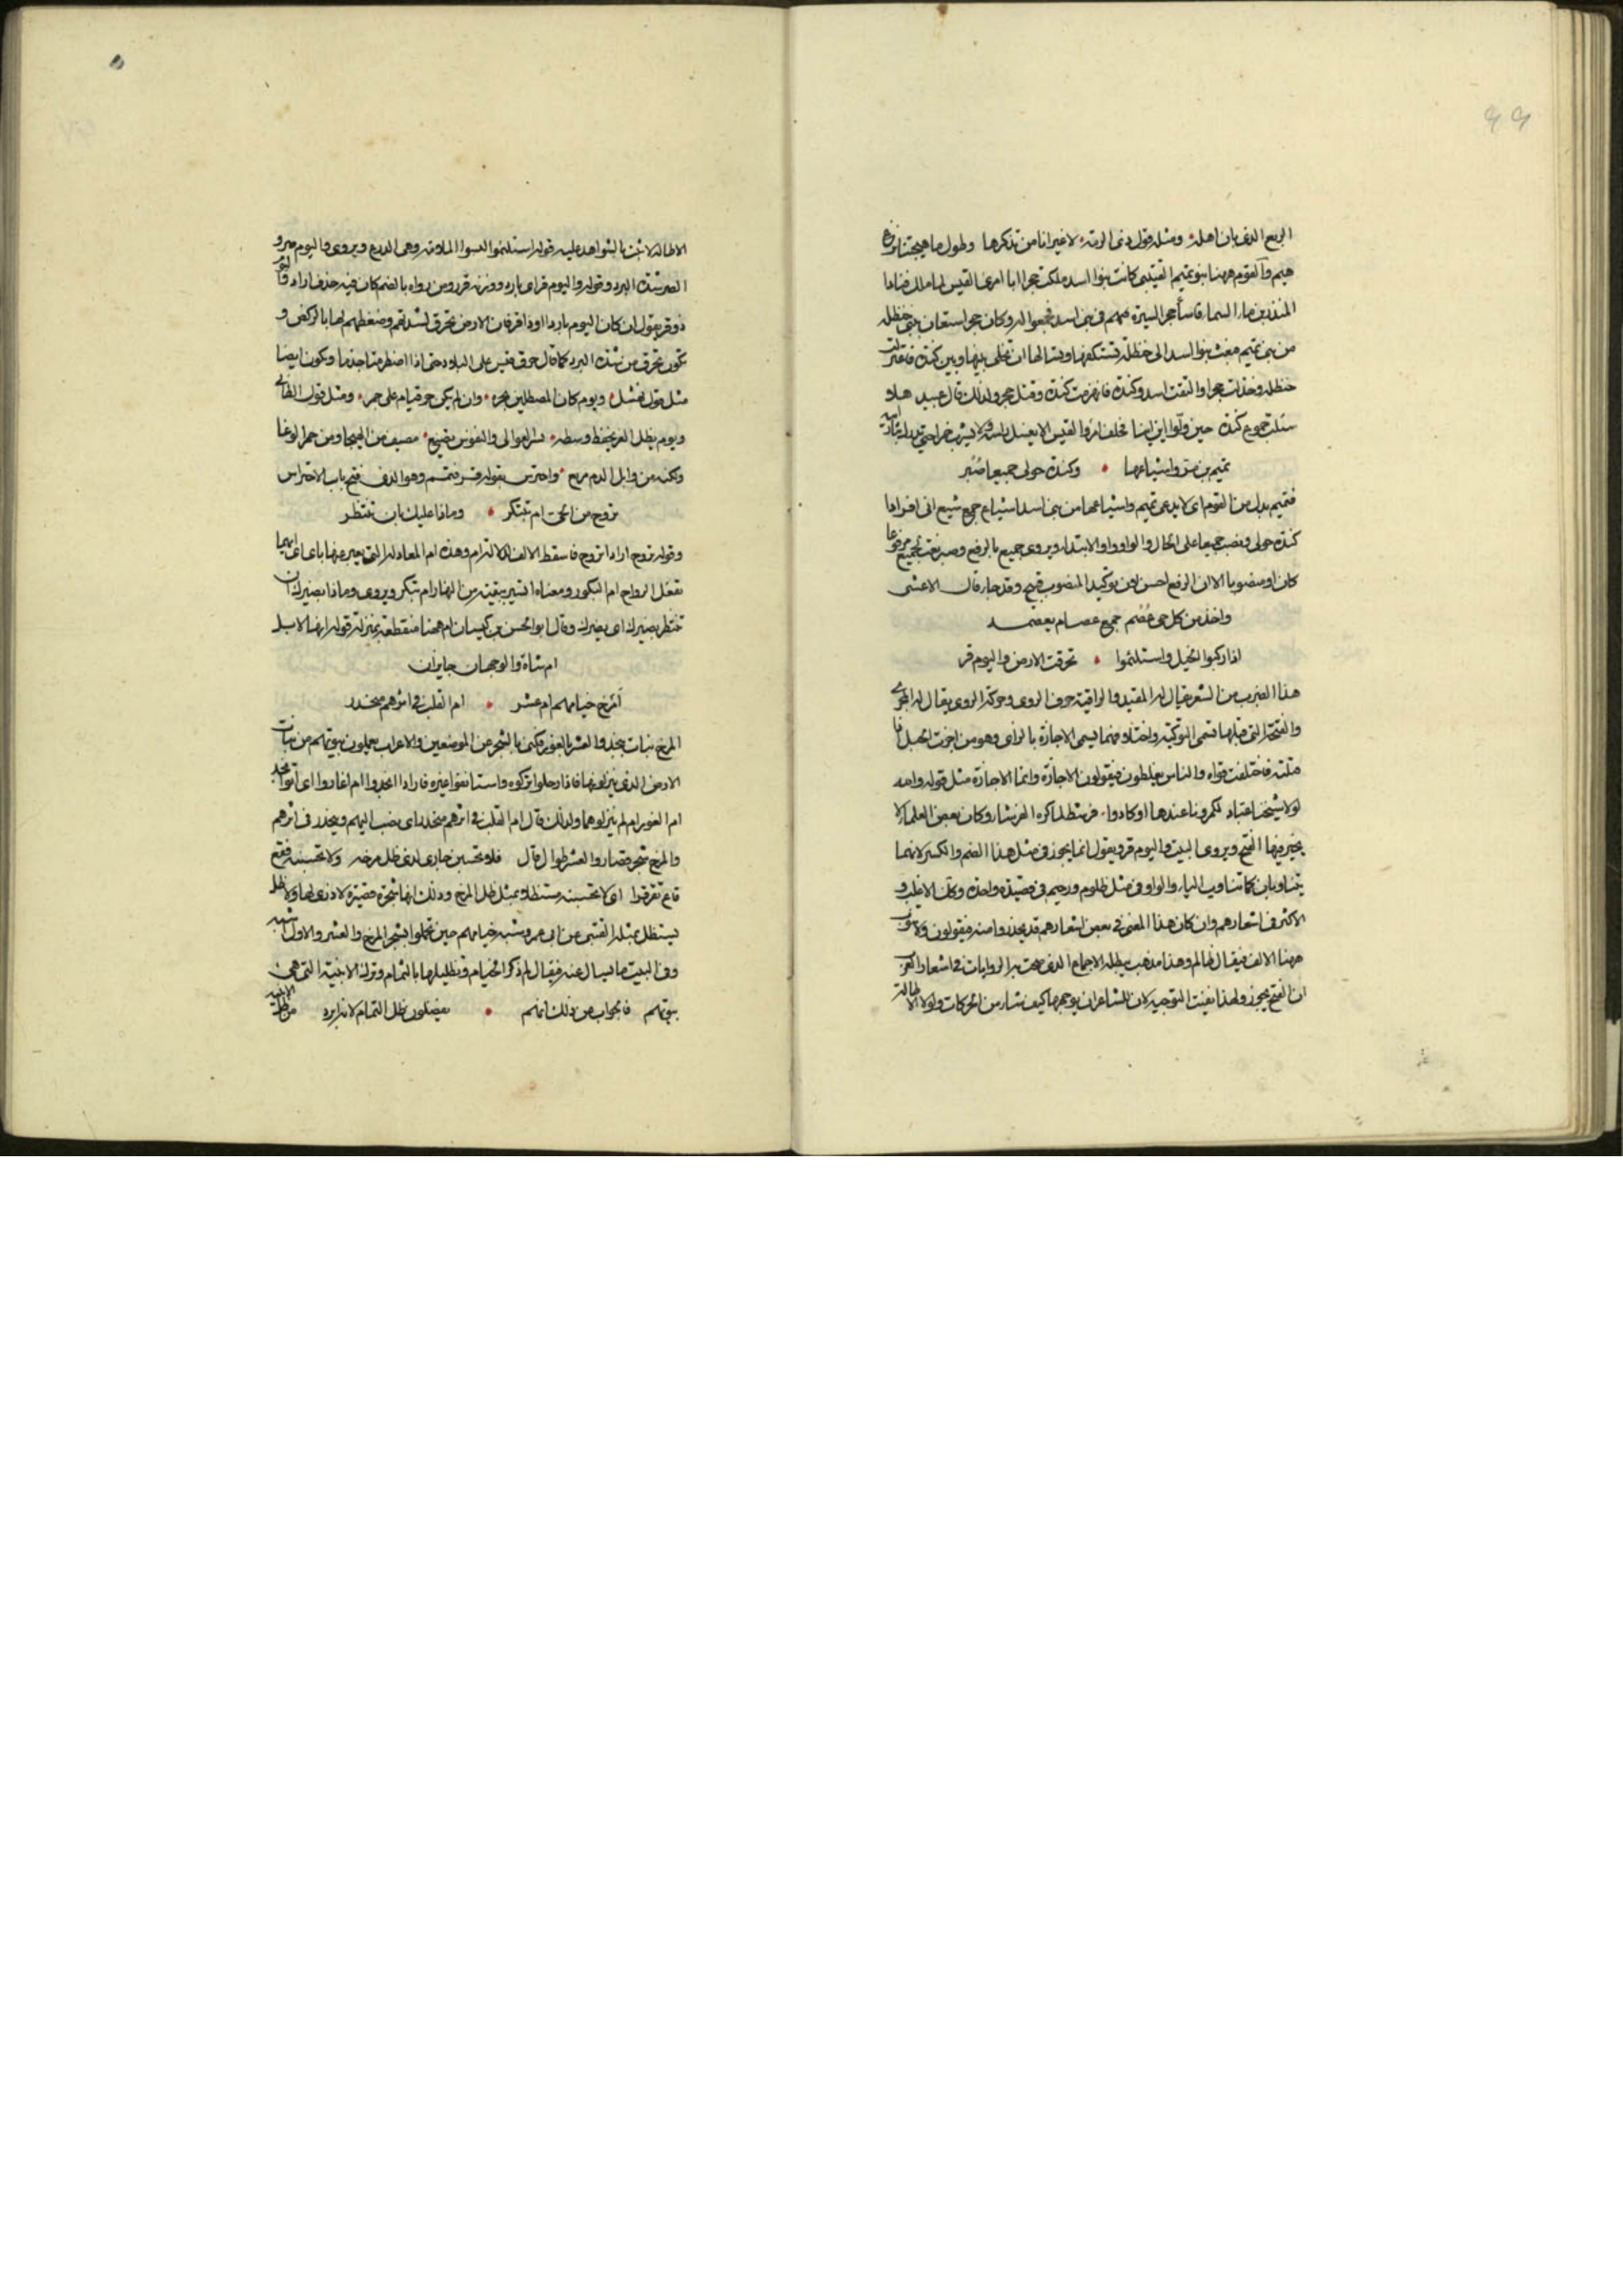 الربع الذى بان اهله ومثله قول ذى الرمة لا غير انا من تذكرها وطول ما هيجتنا نزع
هيم والقوم ههنا بنو تميم القتيبى كانت بنوا اسد ملكت حجرا ابا امرئ القيس لما ملك
المنذر بن ماء السماء فاساء حجر السيرة فيهم فى بنى اسد فجمعوا له وكان حجر استعان ببنى حنظله
من بنى تميم فبعث بنوا اسد الى حنظلة تستكفها وتسالها ان تخلى بينها وبين كندة فاعتزلت
حنظله وخذلت حجرا والتقت اسد وكندة فانهزمت كندة وقتل حجر ولذلك قال عبيد هلا
سئلت جموع كندة حين ولوا اين اينا فحلف امرؤا القيس الا يغسل راسه ولا يشرب خمرا حتى يدرك ثاره
تميم بن مر واشياعها وكندة حولى جميعا صُبُر
فتميم بدل من القوم اى لا يدعى تميم واشياعها من بنى اسد اشياع جمع شيع انى افر اذا
كندة حولى ونصب جميعا على الحال والواو واو الابتداء ويروى جميع بالرفع وصبر نعت لجميع مرفوعا
كان او منصوبا الا ان الرفع احسن لان توكيد المنصوب قبيح وقد جاء قال الاعشى
واخذ من كل حى عُصُم جمع عصام بعصمـــد
اذا ركبوا الخيل واستلئموا تحرقت الارض واليوم قر
هذا الضرب من الشعر يقال له المقيد والراقية حرف الروى وحركة الروى يقال له المجرى
والفتحة التى قبلها تسمى التوجيه واختلاف فتما يسمى الاجازة بالزاى وهو من اجزت الحبل اذا
فتلته فاختلفت قواه والناس يغلطون فيقولون الاجازة وانما الاجازة مثل قوله
يجيز فيها الفتح ويروى البيت واليوم قر ويقول انما يجوز فى مثل هذا الضم والكسر لانهما
يتناوبان كما تتناوب الياء والواو فى مثل ظلوم ورحيم فى قصيدة واحدة وكان الاغلب و
الاكثر فى اشعارهم وان كان هذا المعنى فى بعض اشعارهم قد يحذروا منه فيقولون ولا
ههنا الالف فيقال ظالم وهذا مذهب يبطله الاجماع الذى صحت به الروايات فى اشعار العرب
ان الفتح يجوز ولهذا نعت التوجيه لان للشاعر ان يوجهها كيف شاء من الحركات ولولا الاطالة
الاطالة لاتيت بالشواهد عليه قوله استلئموا البسوا اللامة وهى الدرع ويروى واليوم صر و
الصر شدة البرد وقوله واليوم قر اى بارد ووزنه قرر ومن رواه بالضم كان فيه حذف اراد واليوم
ذو قر يقول ان كان اليوم باردا او ذا قر فان الارض تحرق لشدتهم وضغطهم لها بالركض و
تكون تحرق من شدة البرد كما قال حرق قيس على البلاد حتى اذا اضطرمت اجذما ويكون ايضا
مثل قول نهشل ويوم كان المصطلين بحره وان لم يكن حر قيام على جمر ومثل قول الطائى
ويوم يظل العز يحفظ وسطه بسمر العوالى والنفوس تضيع مصيف من الهيجا ومن جمر الوغا
ولكنه من وابل الدم مربع واحترس بقوله قر فتمم وهو الذى فتح باب الاحتراس
تروح من الحى ام تبتكر وماذا عليك بان تنتظر
وقوله تروح اراد اتروح فاسقط الالف وهذه ام المعادلة التى يعبر عنها باى اى ايهما
تفعل الرواح ام البكور ومعناه اتسير بقية من النهار ام تبتكر ويروى وماذا يضيرك ان
تنتظر يضيرك اى يضرك وقال ابو الحسن بن كيسان ام ههنا منقطعة بمنزلة قوله انها لابل
ام شاة والوجهان جايزان
أمرخ خيامهم ام عشر ام القلب فى اثرهم منحدر
المرخ نبات بنجد والعشر بالغور فكنى بالشجر عن الموضعين والاعراب يعملون بيوتهم من نبات
الارض الذى ينزلونها فاذا رحلوا تركوه واستانفوا غيره فاراد انجدوا ام اغاروا اى اتوا نجد
ام الغور ام لم ينزلوهما ولذلك قال ام القلب فى اثرهم منحدر اى يصب اليهم وينحدر فى اثرهم
والمرخ شجر قصار والعشر طوال قال فلا تحسبن جارى لدى ظل مرخه ولا تحسبنه فقع
قاع بقرقر اى لا تحسبنه مستظلا بمثل ظل المرخ وذلك انها شجرة قصيرة لا ذرى لها ولا ظل
يستظل بمثله القتيبى عن ابى عمرو شبه خيامهم حين تحملوا بشجر المرخ والعشر والاول اشبه
وفى البيت ما يسال عنه فيقال لم ذكر الخيام وتظليلها بالثمام وترك الابنية التى هى
بيوتهم فالجواب عن ذلك انهم يفضلون ظل الثمام لانه ابرد من ظل الابنية